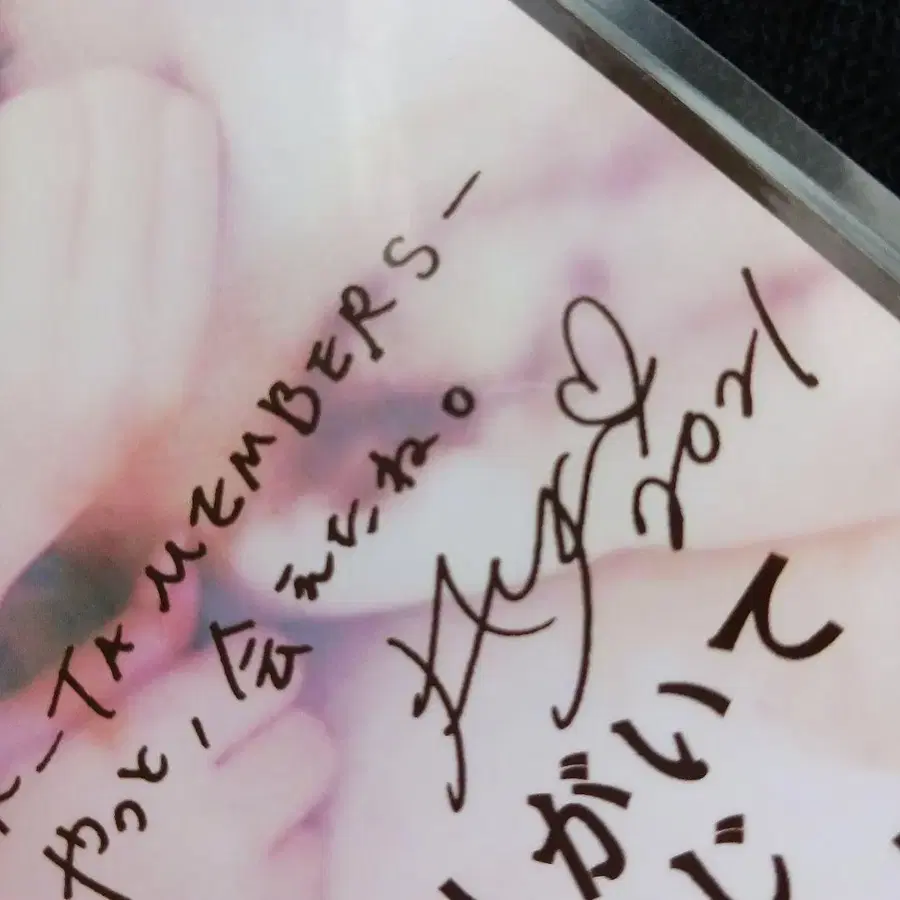 -TA MEMBERS-
やっと、会えたね。
2021
がいて